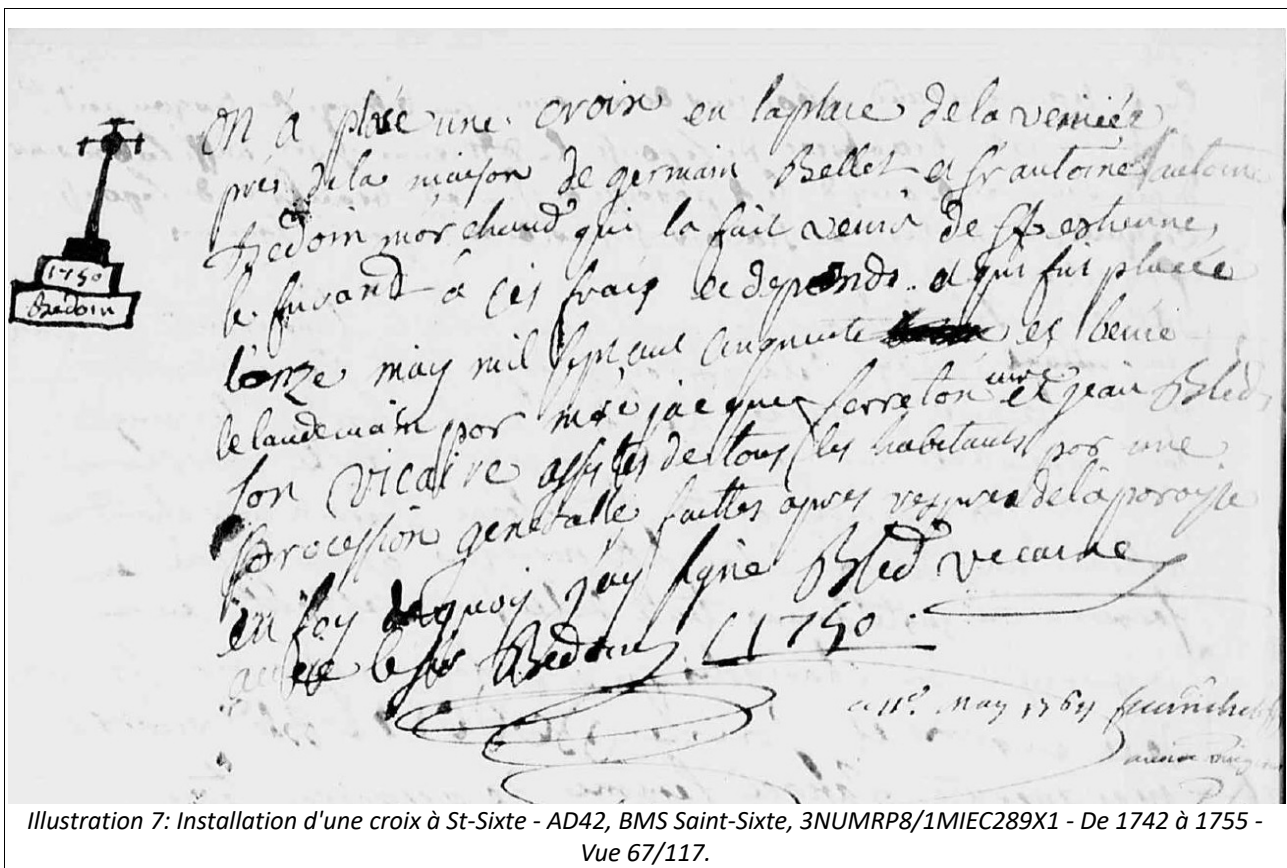 on a placé une croix en la place de la verniée
près de la maison de germain Bellet et Sr antoine antoine
Bedoin marchand qui la fait venir de St estienne
le suivand a ces frais et depends et qui fut placée
l'onze may mil sept cent cinquante et benie
le landemain par mre jacques ferreton curé et jean Bled
son vicaire assistes de tous les habitants par une
procession generalle faittes apres vespres de la paroisse
en foy de quoy j'ay signé Bled vicaire
avec le sr Bedoin 1750
1750
Bedoin
may 1764
Illustration 7: Installation d'une croix à St-Sixte - AD42, BMS Saint-Sixte, 3NUMRP8/1MIEC289X1 - De 1742 à 1755 -
Vue 67/117.